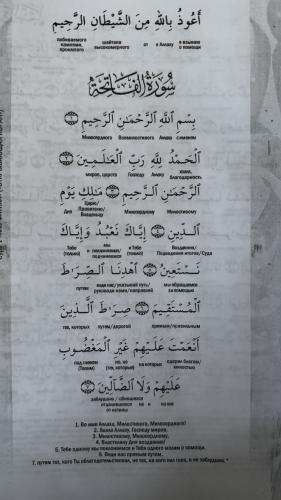 أَعُوذُ بِاللَّهِ مِنَ الشَّيْطَانِ الرَّجِيمِ
побиваемого камнями, проклятого
шайтана высокомерного
от
к Аллаху
я взываю о помощи
سُورَةُ الْفَاتِحَةِ
بِسْمِ ٱللَّهِ ٱلرَّحْمَـٰنِ ٱلرَّحِيمِ ١
Милосердного Всемилостивого Аллаха с именем
ٱلْحَمْدُ لِلَّهِ رَبِّ ٱلْعَـٰلَمِينَ ٢
миров, царств Господу Аллаху хвала, благодарность
ٱلرَّحْمَـٰنِ ٱلرَّحِيمِ ٣ مَـٰلِكِ يَوْمِ
Дня Царю/Правителю/Владыке Милосердному Милостивому
ٱلدِّينِ ٤ إِيَّاكَ نَعْبُدُ وَإِيَّاكَ
Тебе (только) мы поклоняемся/подчиняемся и Тебе (только) Воздаяния/Подведения итогов/Суда
نَسْتَعِينُ ٥ ٱهْدِنَا ٱلصِّرَٰطَ
путем веди нас/указывай путь/руководи нами/направляй мы обращаемся за помощью
ٱلْمُسْتَقِيمَ ٦ صِرَٰطَ ٱلَّذِينَ
тех, которых путем/дорогой прямым/правильным
أَنْعَمْتَ عَلَيْهِمْ غَيْرِ ٱلْمَغْضُوبِ
под гневом (Твоим) не, не (тех, которые) на которых одарил благом/милостью
عَلَيْهِمْ وَلَا ٱلضَّآلِّينَ ٧
заблудших/сбившихся отдалившихся от истины и не на них
1. Во имя Аллаха, Милостивого, Милосердного!
2. Хвала Аллаху, Господу миров,
3. Милостивому, Милосердному,
4. Властелину Дня воздаяния!
5. Тебе одному мы поклоняемся и Тебя одного молим о помощи.
6. Веди нас прямым путем,
7. путем тех, кого Ты облагодетельствовал, не тех, на кого пал гнев, и не заблудших.